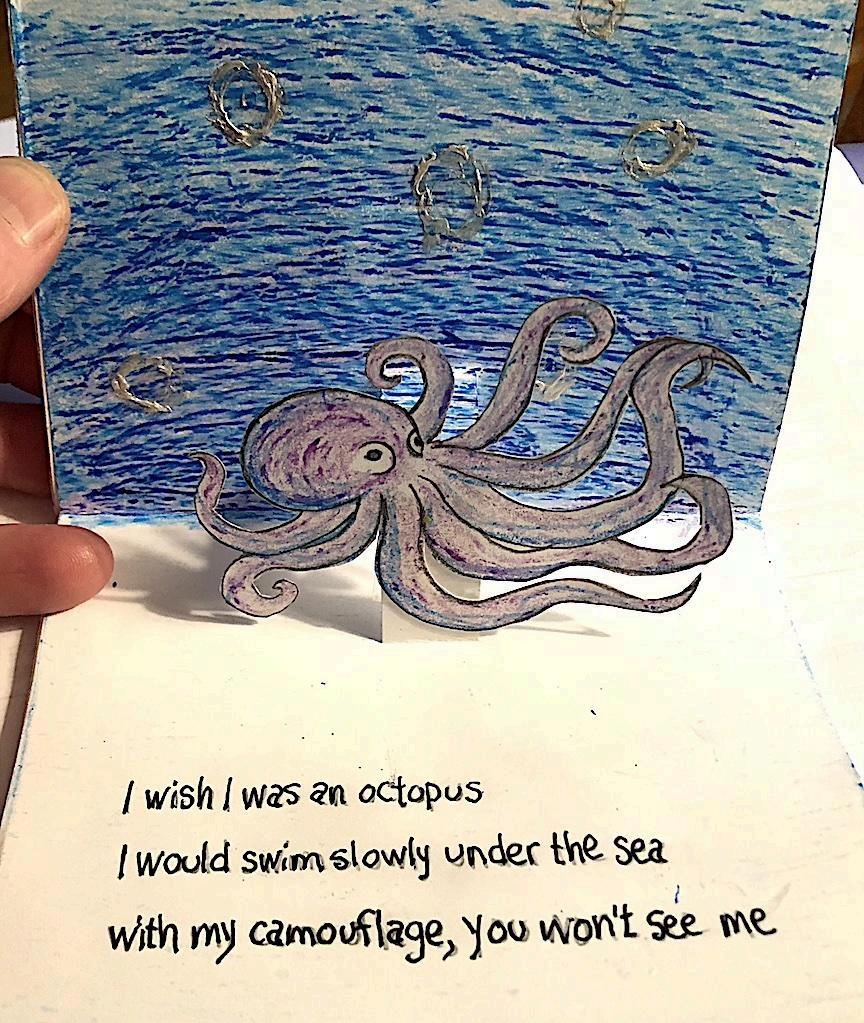 I wish I was an octopus
I would swim slowly under the sea
with my camouflage, you won't see me